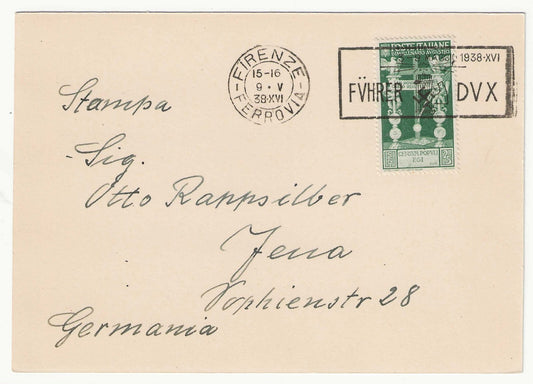 FIRENZE
15-16
9·V
38·XVI
FERROVIA
POSTE ITALIANE
1938·XVI
FÜHRER DVX
CENSVM POPVLI
EGI
Stampa
Sig.
Otto Rappsilber
Jena
Sophienstr 28
Germania